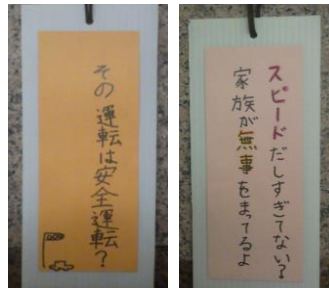 その運転は安全運転？
スピードだしすぎてない？
家族が無事をまってるよ